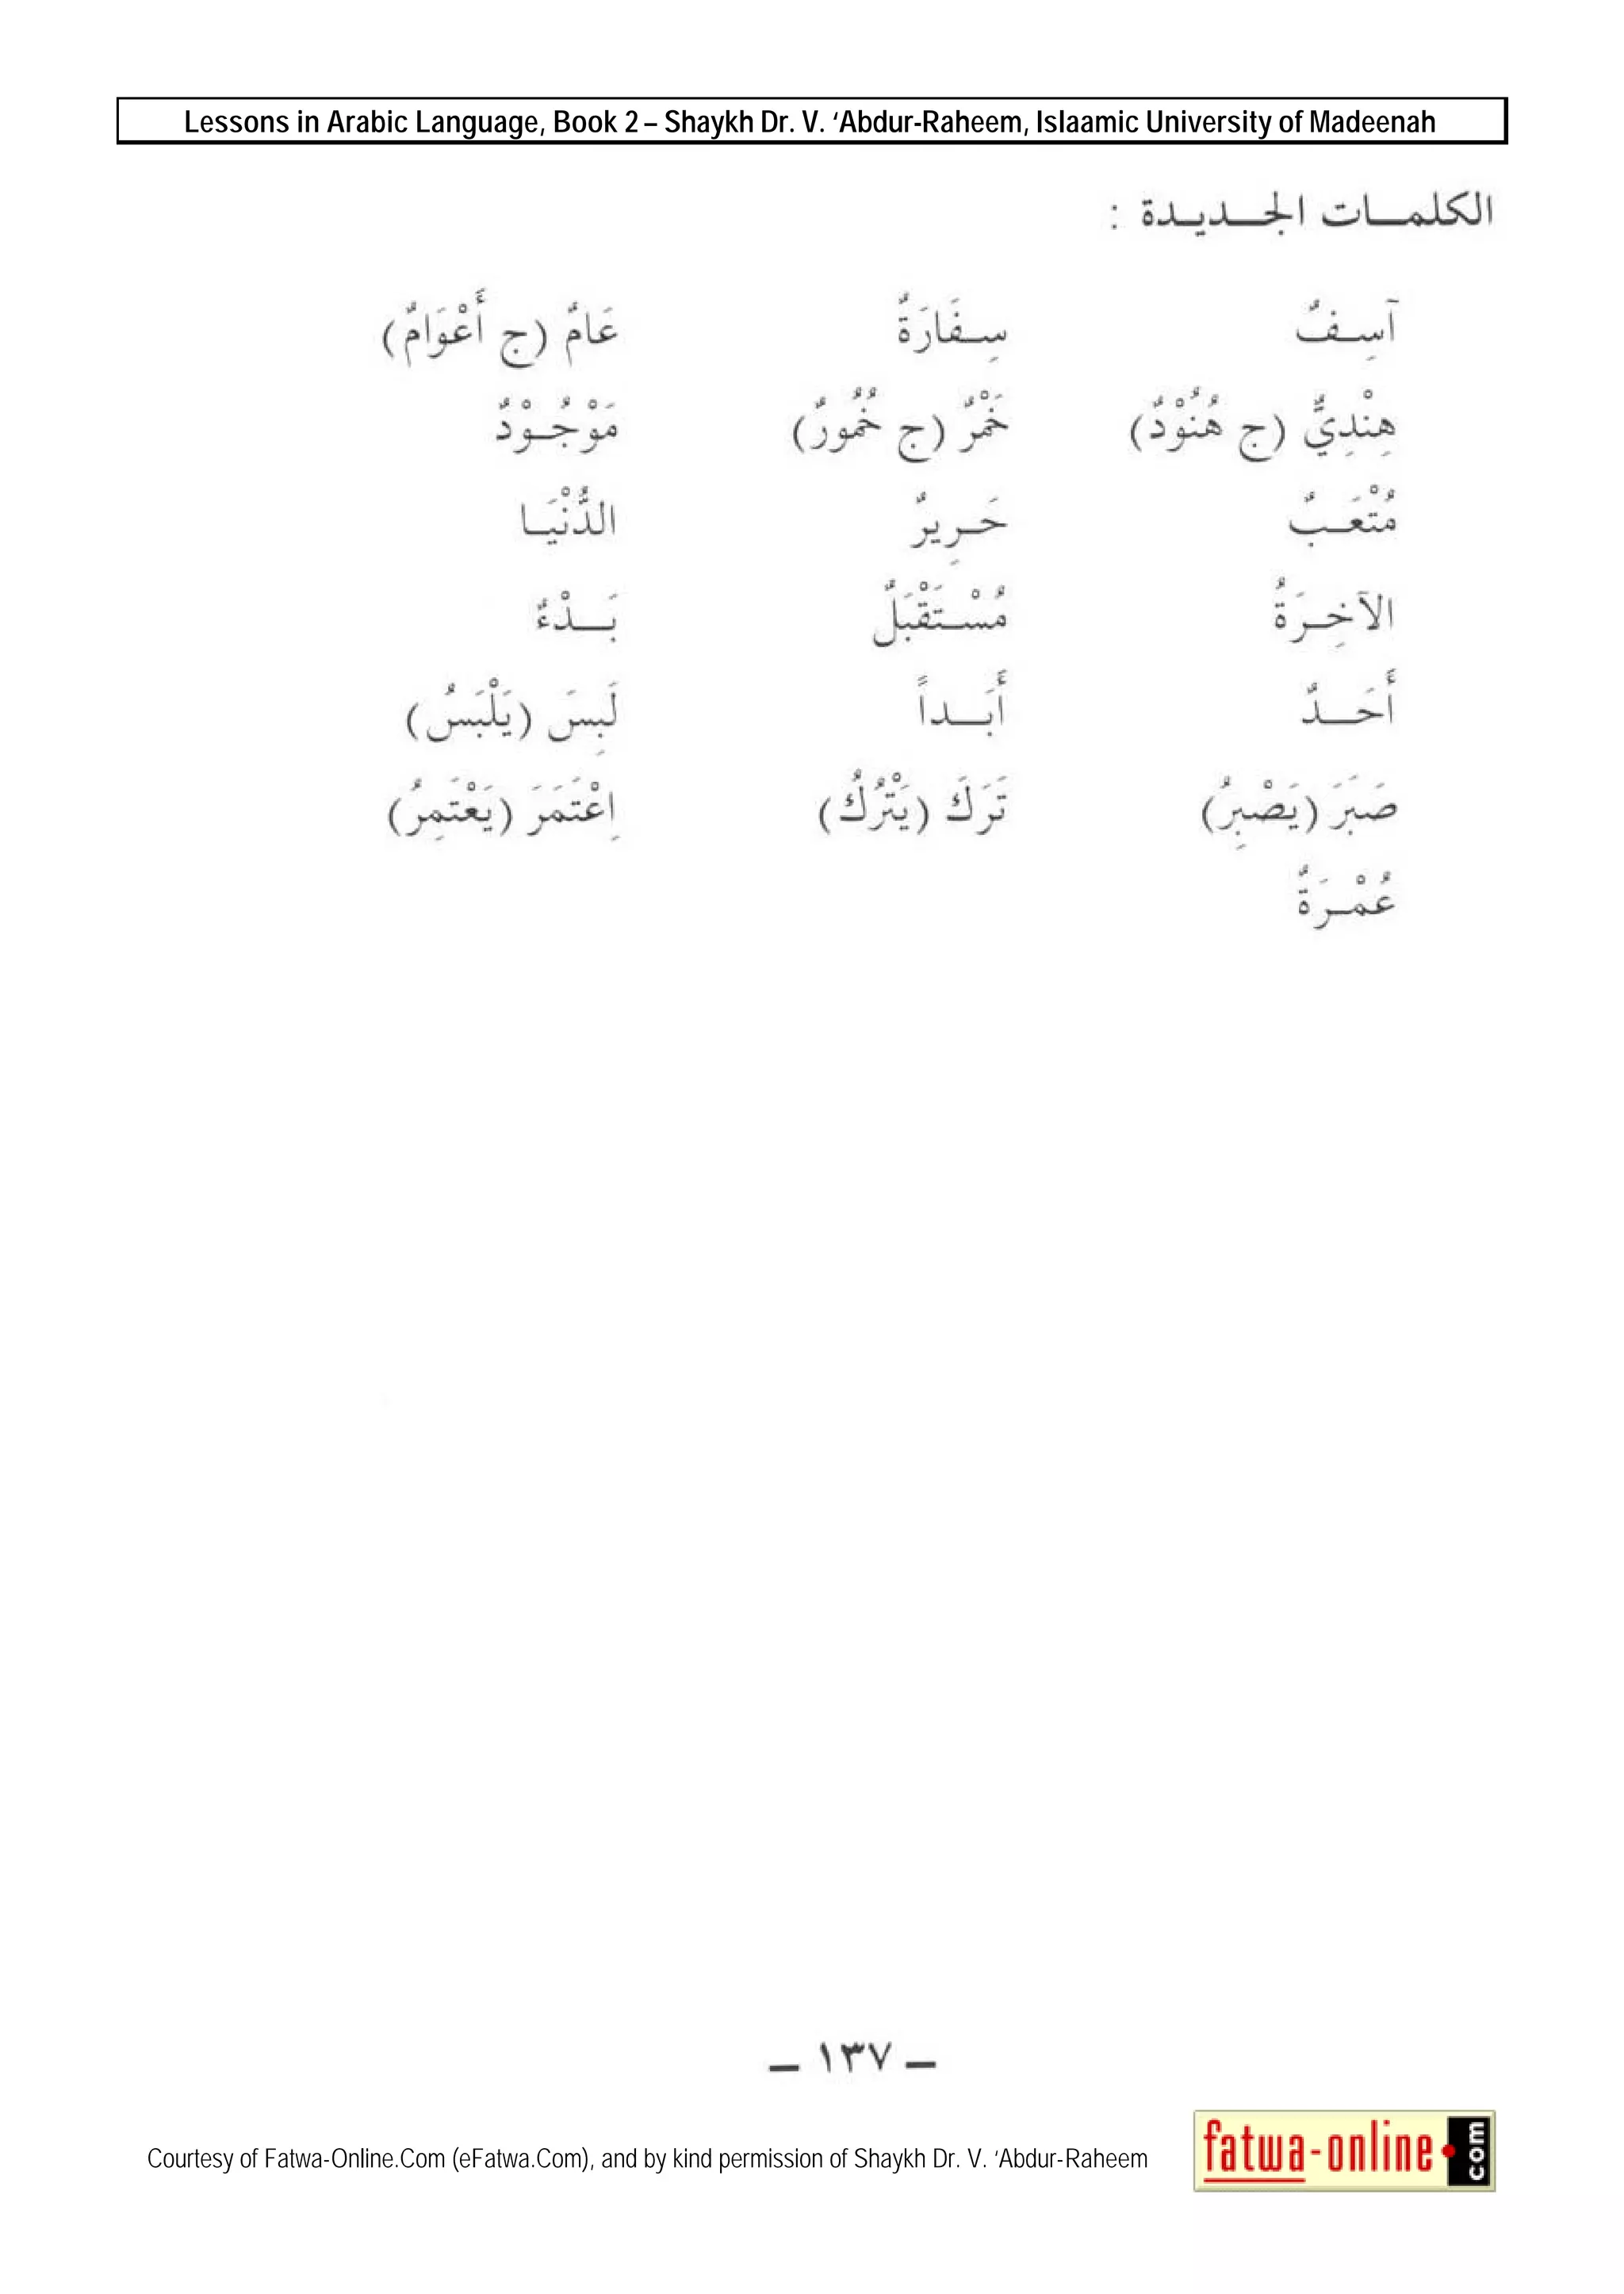 Lessons in Arabic Language, Book 2 – Shaykh Dr. V. ‘Abdur-Raheem, Islaamic University of Madeenah
الكلمـــات الجـــديـدة :
آسِـفٌ سِـفَارَةٌ عَامٌ (ج أَعْوَامٌ)
هِنْدِيٌّ (ج هُنُوْدٌ) خَمْرٌ (ج خُمُورٌ) مَوْجُـوْدٌ
مُتْعَـبٌ حَـرِيرٌ الدُّنْيَـا
الآخِـرَةُ مُسْـتَقْبَلٌ بَـــدْءٌ
أَحَـــدٌ أَبَـــداً لَبِسَ (يَلْبَسُ)
صَبَرَ (يَصْبِرُ) تَرَكَ (يَتْرُكُ) اِعْتَمَرَ (يَعْتَمِرُ)
عُمْـرَةٌ
– ١٣٧ –
Courtesy of Fatwa-Online.Com (eFatwa.Com), and by kind permission of Shaykh Dr. V. ‘Abdur-Raheem
fatwa-online.com